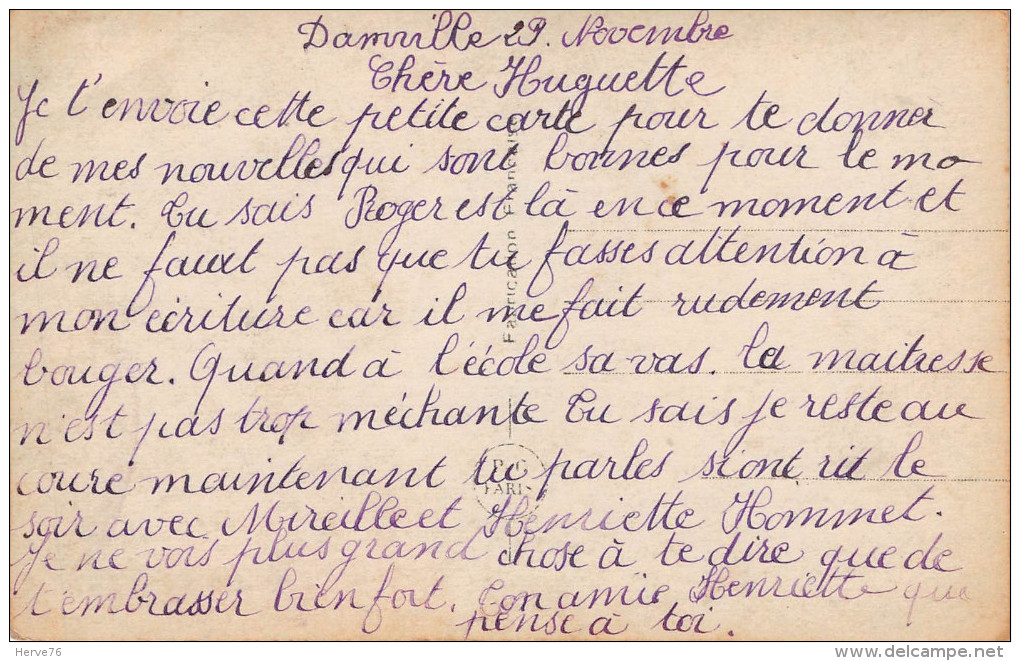 Damville 29. Novembre
Chère Huguette
Je t'envoie cette petite carte pour te donner
de mes nouvelles qui sont bonnes pour le mo
ment. Tu sais Roger est là en ce moment et
il ne faut pas que tu fasses attention à
mon écriture car il me fait rudement
bouger. Quand à l'école sa vas. la maitresse
n'est pas trop méchante Tu sais je reste au
coure maintenant tu parles si ont rit le
soir avec Mireille et Henriette Hommet.
Je ne vois plus grand chose à te dire que de
t'embrasser bien fort. Ton amie Henriette que
pense à toi.
Fabrication Française
PARIS
Herve76
www.delcampe.net